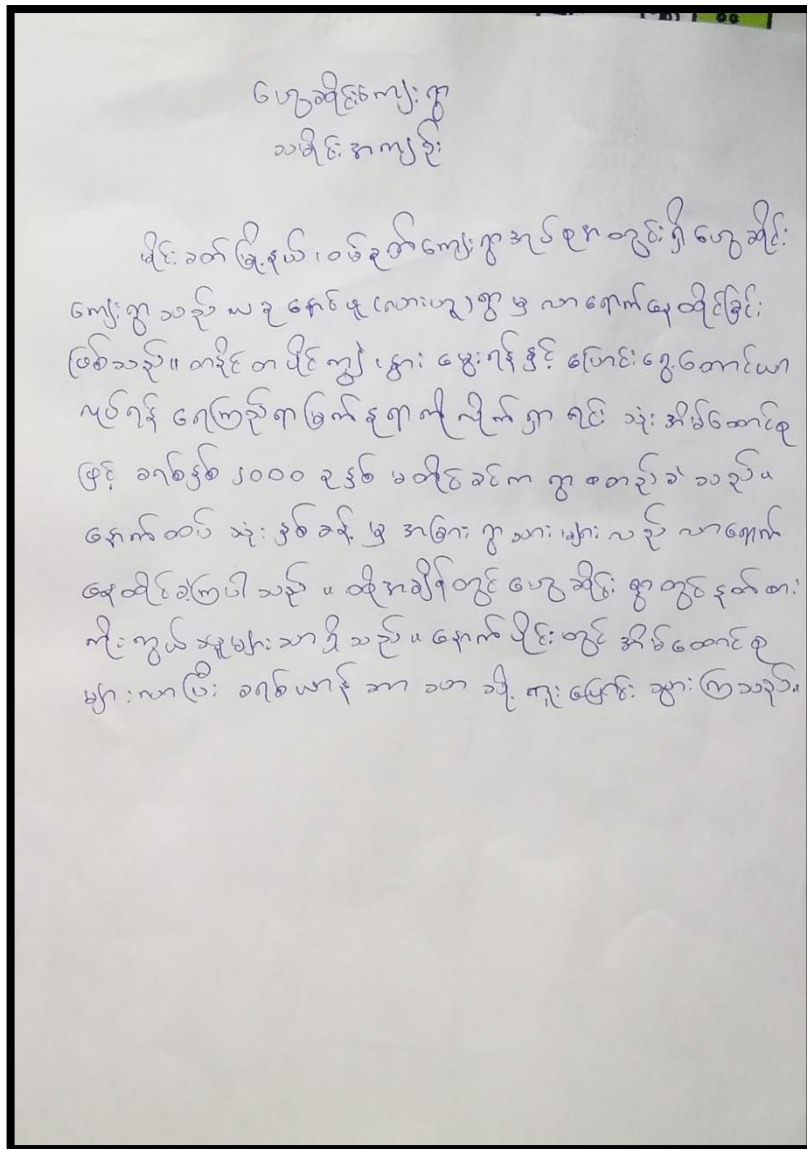 ဟွေ့ဆိုင်းကျေးရွာ
သမိုင်းအကျဉ်း
မိုင်းခတ်မြို့နယ်၊ ဝမ်နတ်ကျေးရွာအုပ်စုအတွင်းရှိ ဟွေ့ဆိုင်း
ကျေးရွာသည် ယခု နောင်ဖူ (လားဟူ) ရွာမှ လာရောက်နေထိုင်ခြင်း
ဖြစ်သည်။ တနိုင်တပိုင်ကျွဲ၊ နွား မွေးရန်နှင့် ပြောင်းရွှေ့တောင်ယာ
လုပ်ရန် ရေကြည်ရာမြက်နုရာကိုလိုက်ရှာရင်း သုံးအိမ်ထောင်စု
ဖြင့် ခရစ်နှစ် ၂၀၀၀ ခုနှစ် မတိုင်ခင်က ရွာစတည်ခဲ့သည်။
နောက်ထပ် သုံးနှစ်ခန့်မှ အခြားရွာသားများလည် လာရောက်
နေထိုင်ခဲ့ကြပါသည်။ ထိုအချိန်တွင် ဟွေ့ဆိုင်း ရွာတွင် နတ်စား
ကိုးကွယ်သူများသာရှိသည်။ နောက်ပိုင်းတွင် အိမ်ထောင်စု
များလာပြီး ခရစ်ယာန်ဘာသာသို့ ကူးပြောင်းသွားကြသည်။